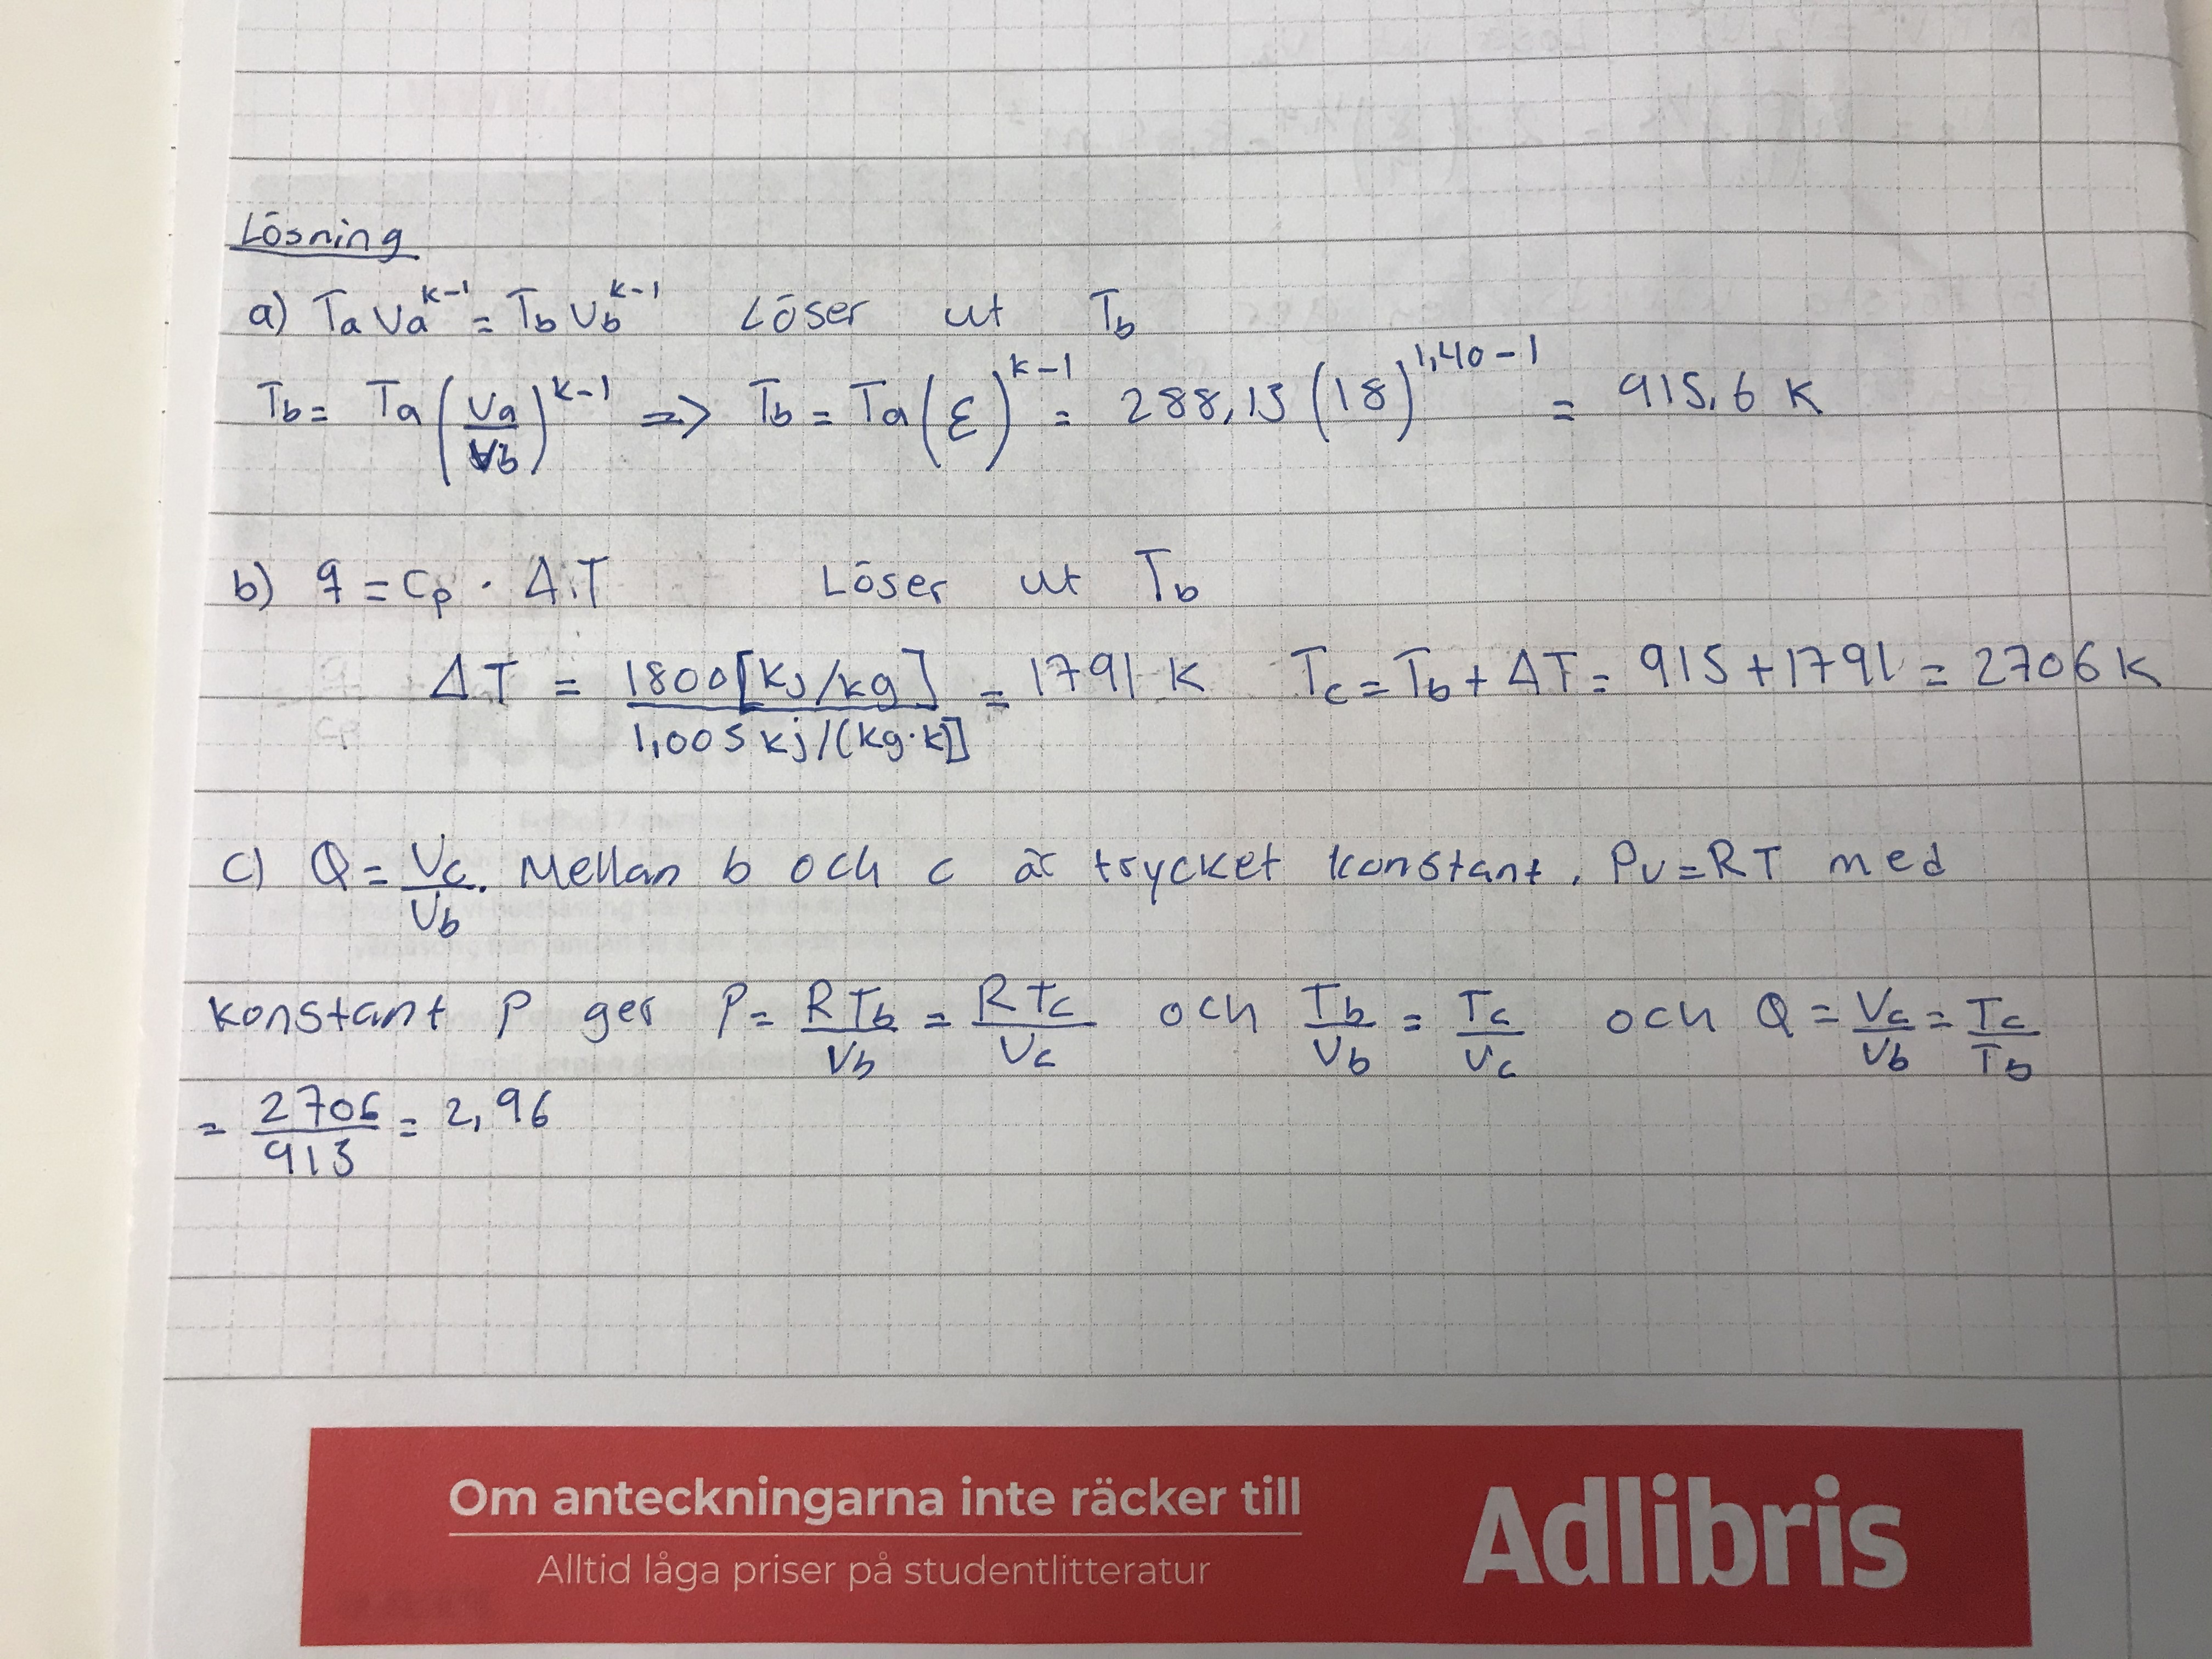 Lösning
a) Ta Va^(k-1) = Tb Vb^(k-1) Löser ut Tb
Tb = Ta (Va/Vb)^(k-1) => Tb = Ta (ε)^(k-1) = 288,15 (18)^(1,40-1) = 915,6 K
b) q = cp · ΔT Löser ut Tb
ΔT = 1800 [kj/kg] / 1,005 kj/(kg·k)] = 1791 K Tc = Tb + ΔT = 915 + 1791 = 2706 K
c) Q = Vc/Vb. Mellan b och c är trycket konstant. Pv = RT med
konstant P ger P = RTb/Vb = RTc/Vc och Tb/Vb = Tc/Vc och Q = Vc/Vb = Tc/Tb
= 2706/913 = 2,96
Om anteckningarna inte räcker till
Alltid låga priser på studentlitteratur
Adlibris